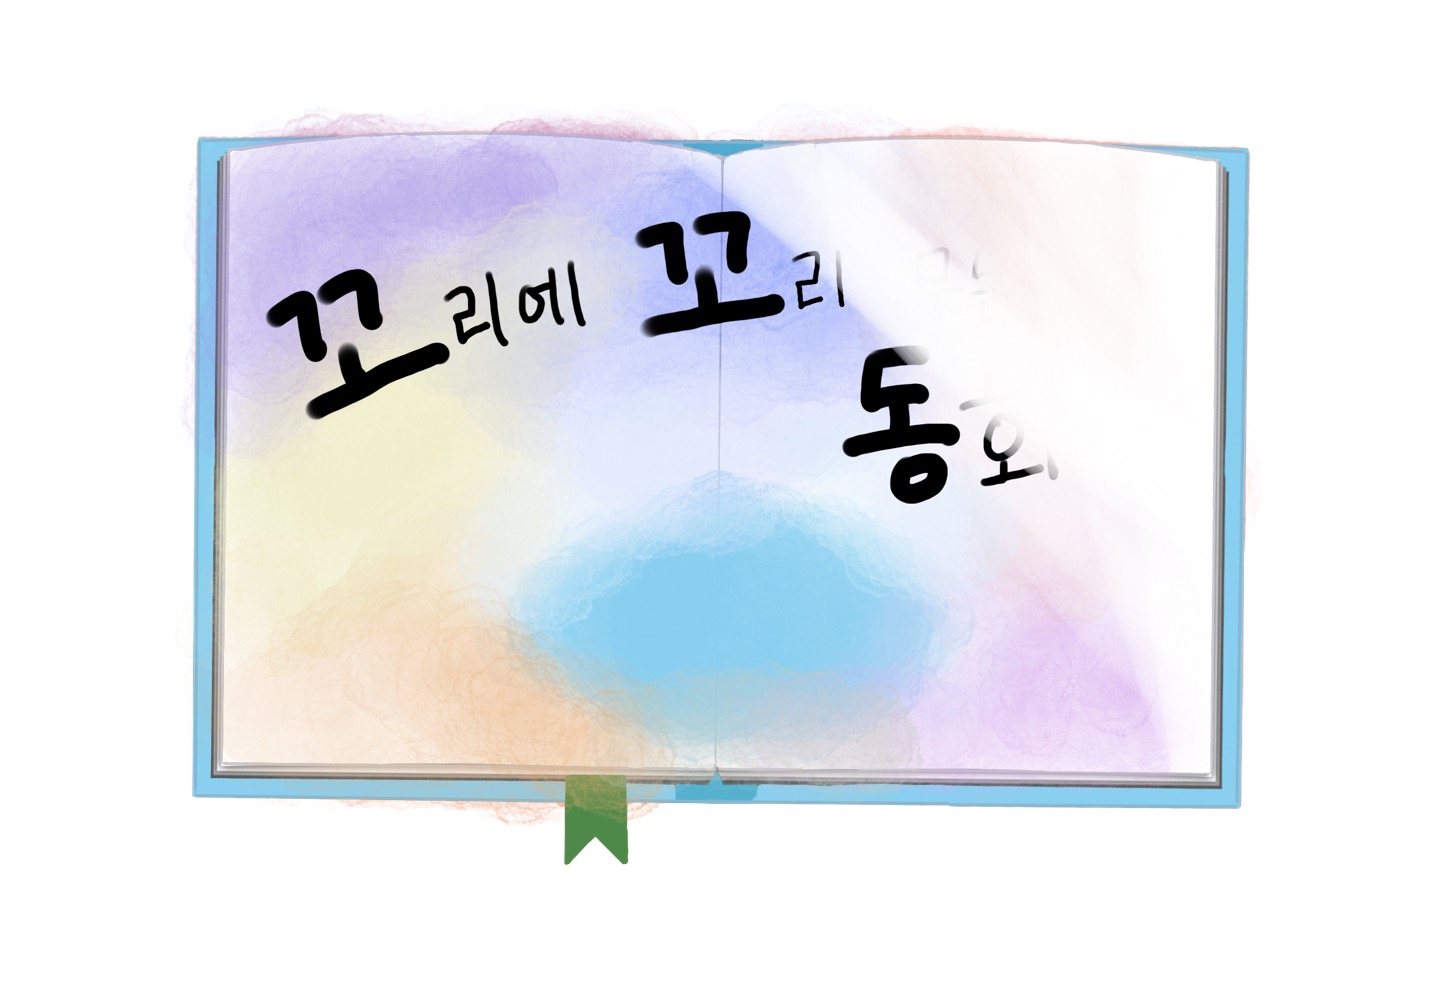 꼬리에 꼬리
동화